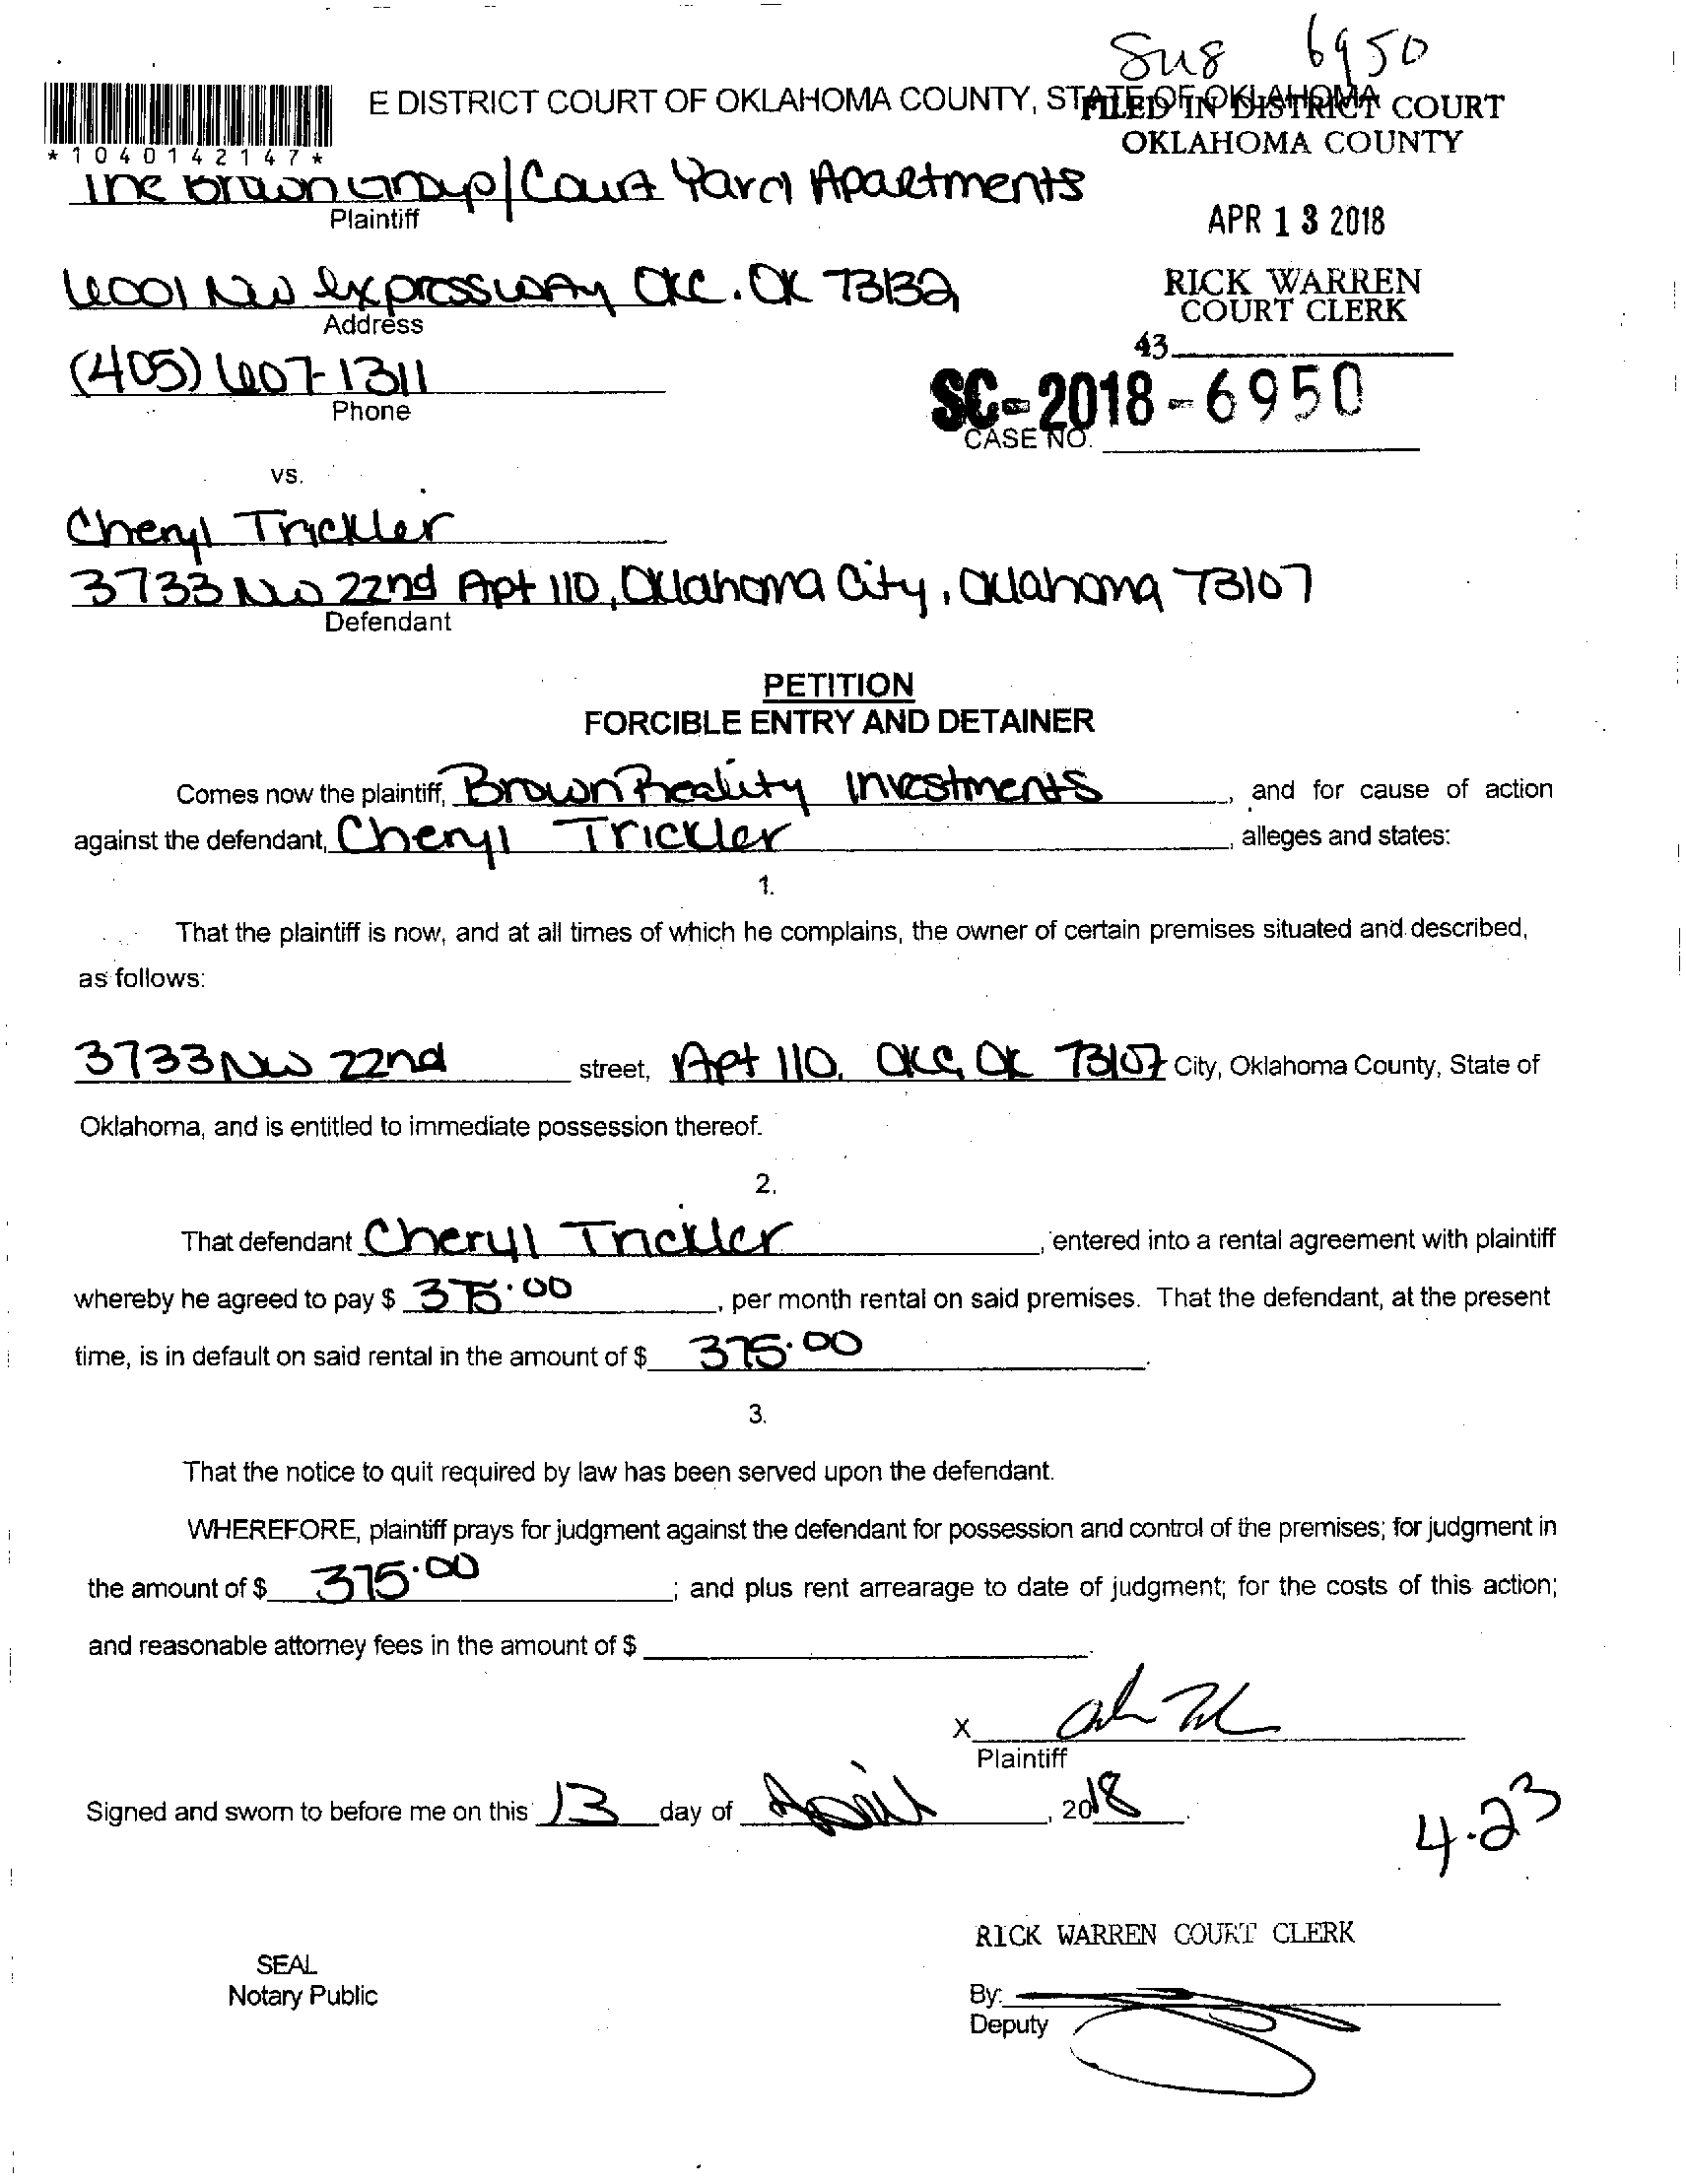 Sug 6950
E DISTRICT COURT OF OKLAHOMA COUNTY, STATE OF OKLAHOMA
FILED IN DISTRICT COURT
OKLAHOMA COUNTY
*1040142147*
The Brown Group/Court Yard Apartments
Plaintiff
APR 13 2018
6001 NW expressway OKC. OK 73132
Address
RICK WARREN
COURT CLERK
43
(405) 607-1311
Phone
SC-2018-6950
CASE NO.
vs.
Cheryl Trickler
3733 NW 22nd Apt 110, Oklahoma City, Oklahoma 73107
Defendant
PETITION
FORCIBLE ENTRY AND DETAINER
Comes now the plaintiff, Brown Reality Investments, and for cause of action
against the defendant, Cheryl Trickler, alleges and states:
1.
That the plaintiff is now, and at all times of which he complains, the owner of certain premises situated and described,
as follows:
3733 NW 22nd street, Apt 110, OKC, OK 73107 City, Oklahoma County, State of
Oklahoma, and is entitled to immediate possession thereof.
2.
That defendant Cheryl Trickler, entered into a rental agreement with plaintiff
whereby he agreed to pay $ 375.00, per month rental on said premises. That the defendant, at the present
time, is in default on said rental in the amount of $ 375.00.
3.
That the notice to quit required by law has been served upon the defendant.
WHEREFORE, plaintiff prays for judgment against the defendant for possession and control of the premises; for judgment in
the amount of $ 375.00; and plus rent arrearage to date of judgment; for the costs of this action;
and reasonable attorney fees in the amount of $ .
X
Plaintiff
Signed and sworn to before me on this 13 day of April, 2018.
4.23
RICK WARREN COURT CLERK
SEAL
Notary Public
By:
Deputy